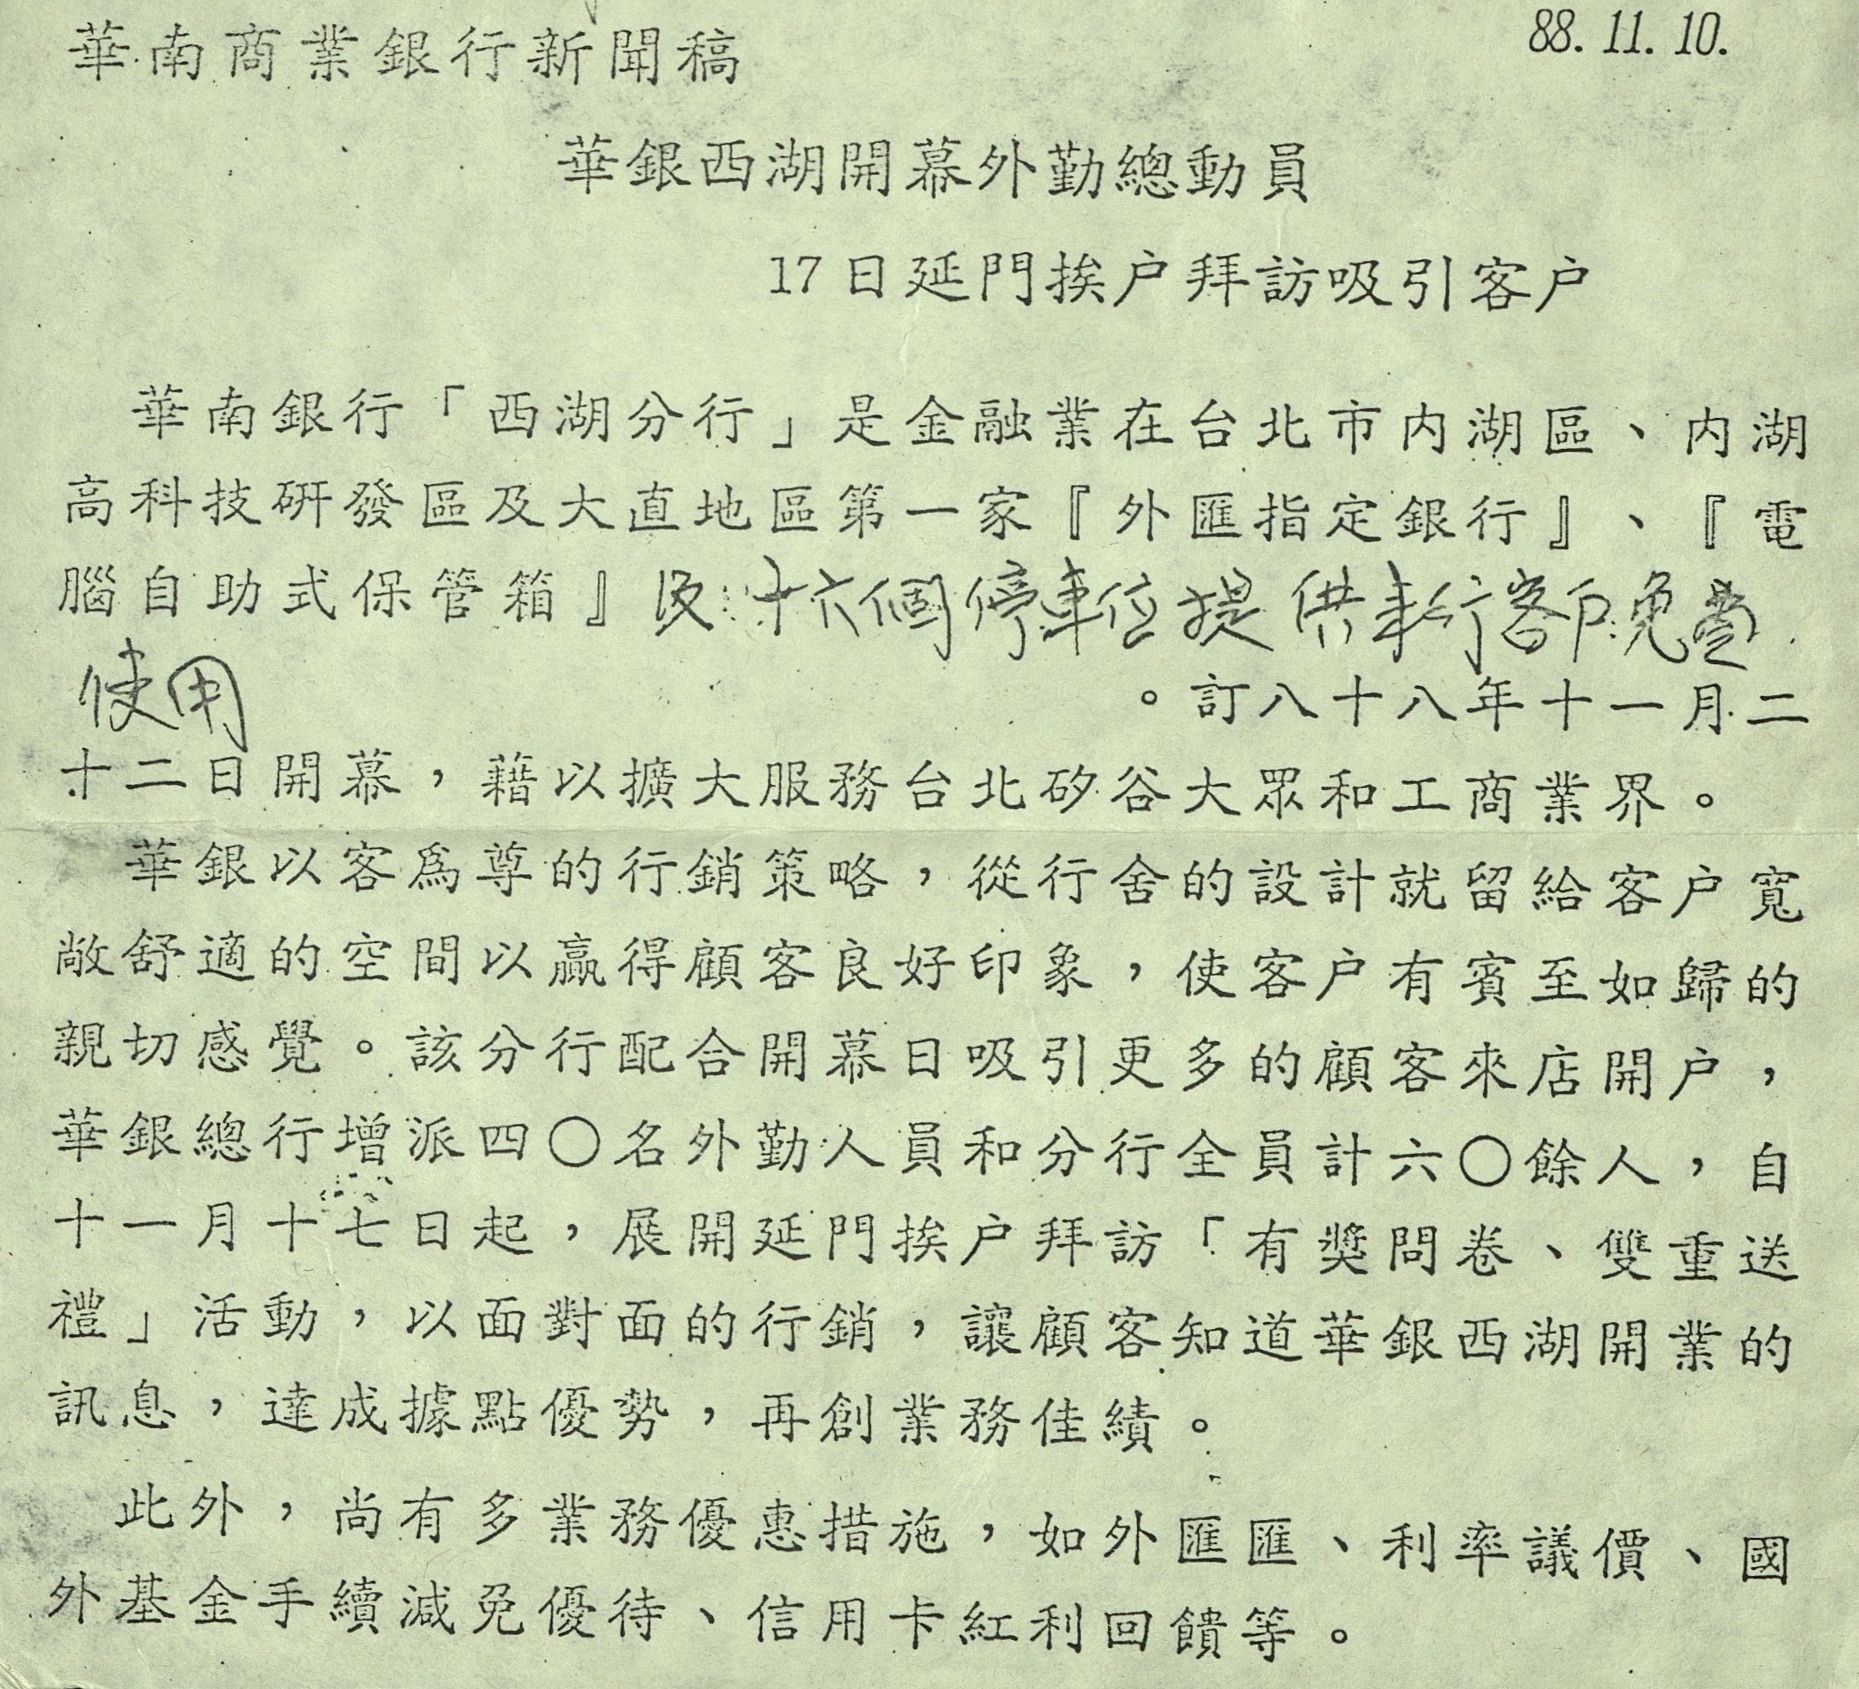 華南商業銀行新聞稿
88.11.10.
華銀西湖開幕外勤總動員
17日延門挨户拜訪吸引客户
華南銀行「西湖分行」是金融業在台北市內湖區、內湖
高科技研發區及大直地區第一家『外匯指定銀行』、『電
腦自助式保管箱』及十六個停車位提供本行客戶免費
使用
。訂八十八年十一月二
十二日開幕，藉以擴大服務台北矽谷大眾和工商業界。
華銀以客爲尊的行銷策略，從行舍的設計就留給客户寬
敞舒適的空間以贏得顧客良好印象，使客户有賓至如歸的
親切感覺。該分行配合開幕日吸引更多的顧客來店開户，
華銀總行增派四〇名外勤人員和分行全員計六〇餘人，自
十一月十七日起，展開延門挨户拜訪「有獎問卷、雙重送
禮」活動，以面對面的行銷，讓顧客知道華銀西湖開業的
訊息，達成據點優勢，再創業務佳績。
此外，尚有多業務優惠措施，如外匯匯、利率議價、國
外基金手續減免優待、信用卡紅利回饋等。